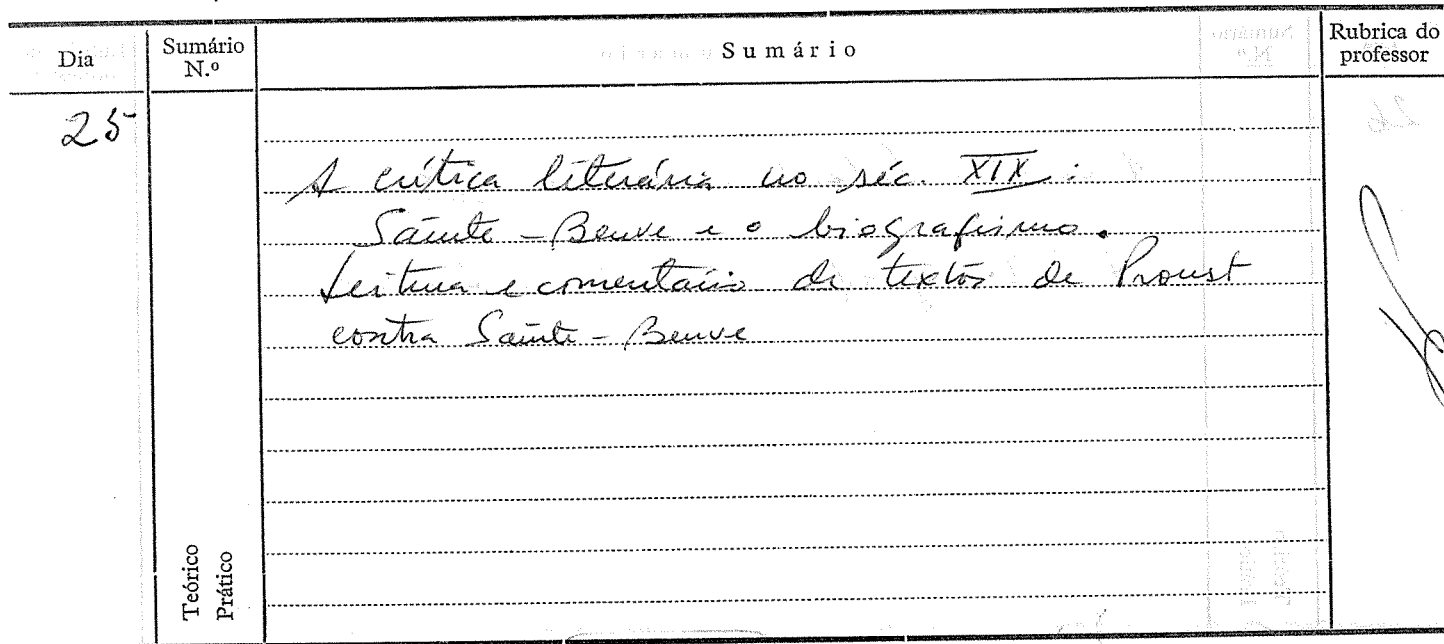 Dia
Sumário N.º
Sumário
Rubrica do professor
25
A crítica literária no séc. XIX :
Sainte-Beuve e o biografismo.
Leitura e comentário de textos de Proust
contra Sainte-Beuve
Teórico
Prático